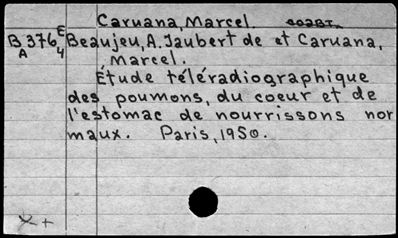 Caruana, Marcel.
B 376 E Beaujeu, A. Jaubert de et Caruana,
A 4 Marcel.
Étude téléradiographique
des poumons, du coeur et de
l'estomac de nourrissons nor
maux. Paris, 1950.